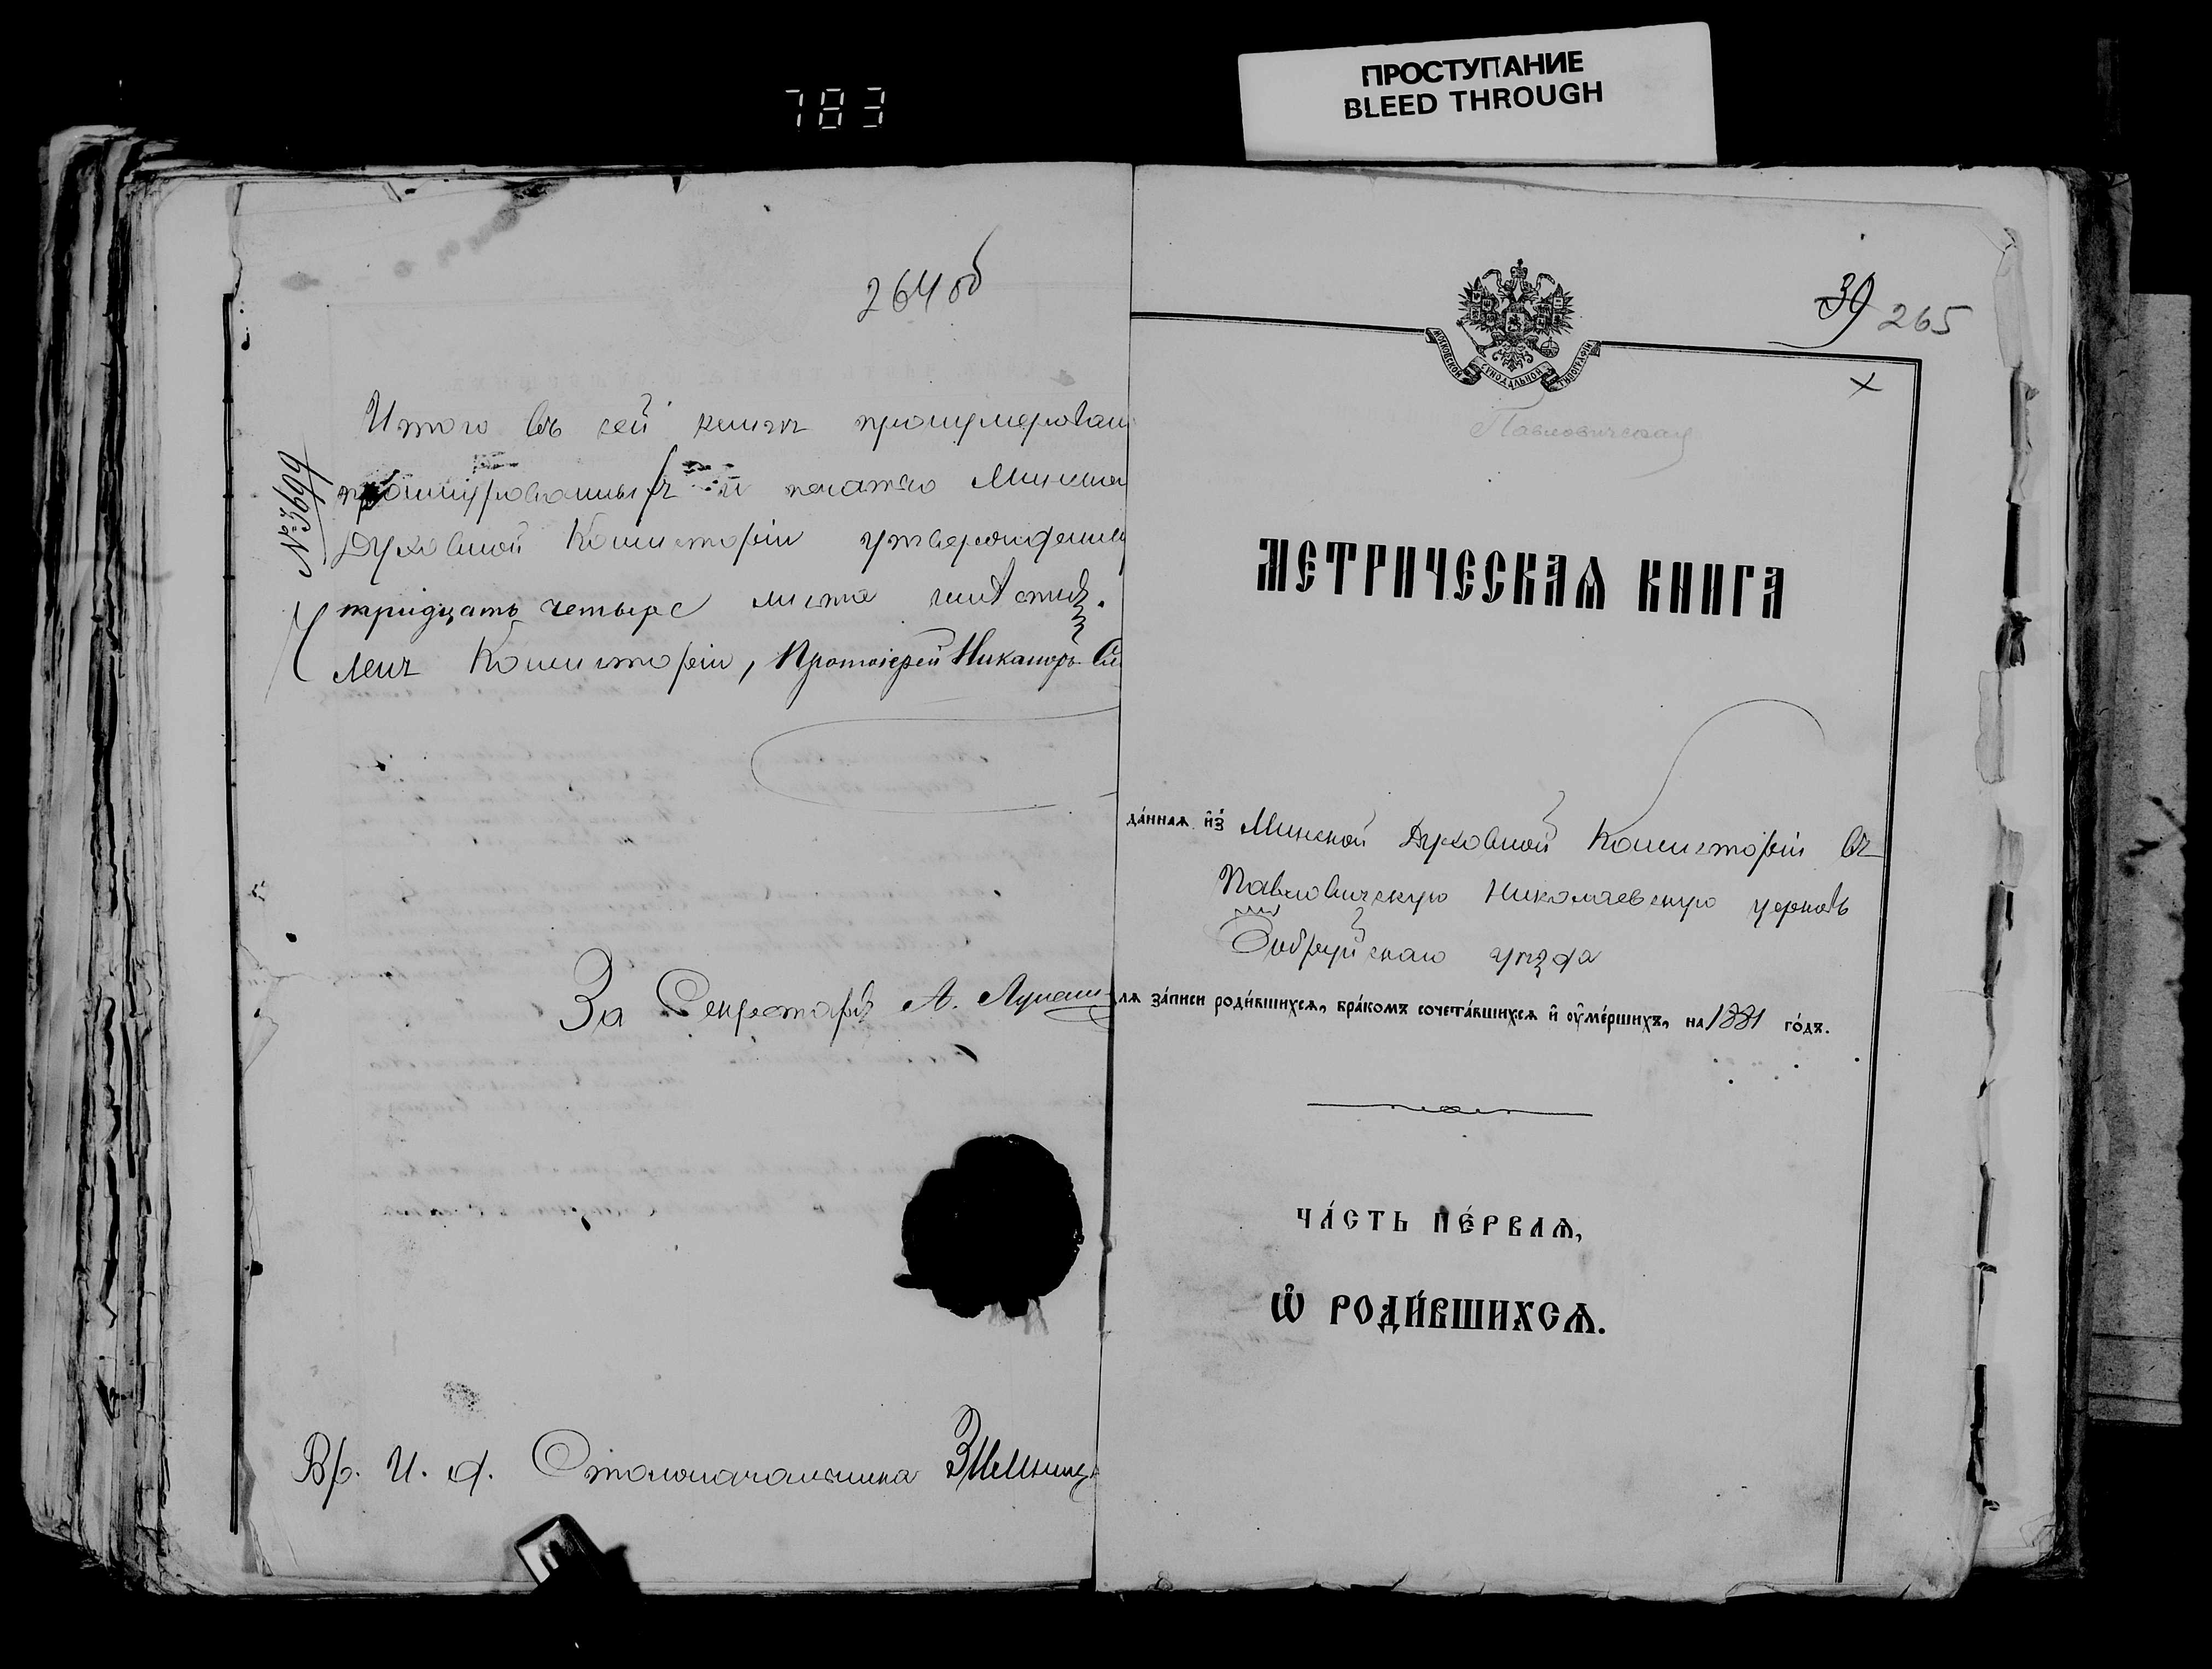 783
ПРОСТУПАНИЕ
BLEED THROUGH
264 об
№ 3699
Итого въ сей книгѣ пронумерован
прошнурованныхъ и печатью Минской
Духовной Консисторіи утвержденны
тридцать четыре листа
Членъ Консисторіи, Протоіерей Никаноръ См
За Секретаря А. Лукаш
Вр. И. д. Столоначальника
39 265
МОСКОВСКОЙ СѴНОДАЛЬНОЙ ТИПОГРАФІИ
Павловическая
МЕТРИЧЕСКАѦ КНИГА
да́ннаѧ и҆з̾ Минской Духовной Консисторіи въ
Павловическую Николаевскую церковь
Бобруйскаго уѣзда
лѧ за́писи роди́вшихсѧ, бра́комъ сочета́вшихсѧ и҆ ᲂу҆ме́ршихъ, на 1881 го́дъ.
ЧА́СТЬ ПЕ́РВАѦ,
Ѽ РОДИ́ВШИХСѦ.